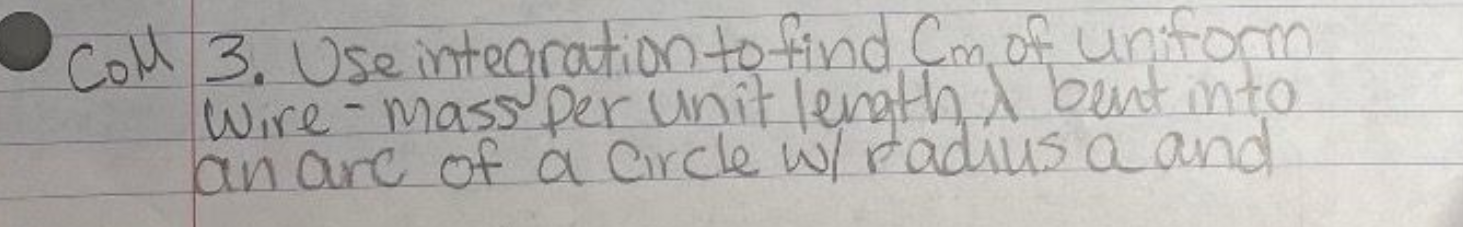 CoM 3. Use integration to find Cm of uniform
wire - mass per unit length λ bent into
an arc of a circle w/ radius a and